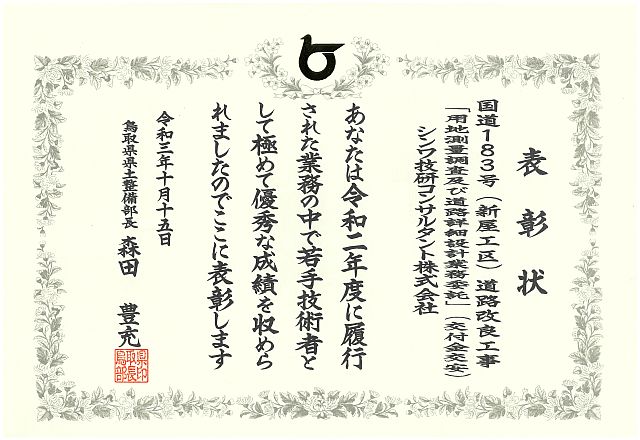 表彰状
国道183号（新屋工区）道路改良工事
「用地測量調査及び道路詳細設計業務委託」（交付金交安）
シンワ技研コンサルタント株式会社
あなたは令和二年度に履行
された業務の中で若手技術者と
して極めて優秀な成績を収めら
れましたのでここに表彰します
令和三年十月十五日
鳥取県県土整備部長 森田 豊充